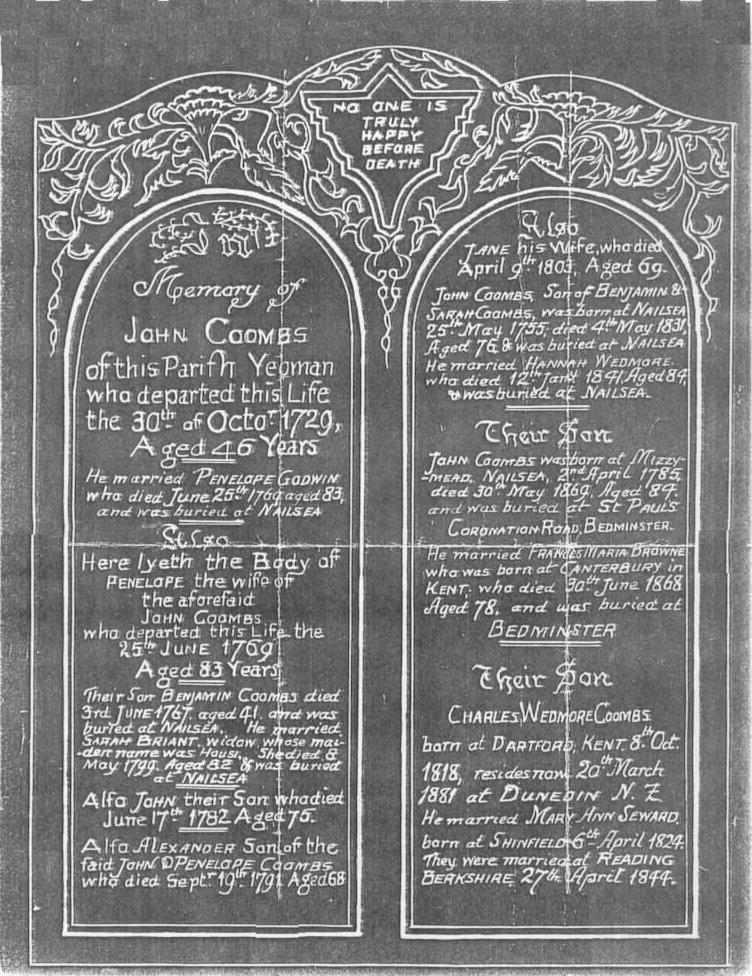 NO ONE IS
TRULY
HAPPY
BEFORE
DEATH
Memory of
JOHN COOMBS
of this Pariſh Yeoman
who departed this Life
the 30th of Octor 1729,
Aged 46 Years
He married PENELOPE GODWIN
who died June 25th 1769 aged 83,
and was buried at NAILSEA
Also
Here lyeth the Body of
PENELOPE the wife of
the aforeſaid
JOHN COOMBS
who departed this Life the
25th JUNE 1769
Aged 83 Years
Their Son BENJAMIN COOMBS died
3rd JUNE 1767. aged 41. and was
buried at NAILSEA. He married
SARAH BRIANT, widow, whose mai-
-den name was HOUSE. She died 8
May 1799. Aged 82 & was buried
at NAILSEA
Alſo JOHN their Son who died
June 17th 1782 Aged 75.
Alſo ALEXANDER Son of the
ſaid JOHN & PENELOPE COOMBS
who died Septr 19th 1791 Aged 68
Also
JANE his Wife, who died
April 9th 1803, Aged 69.
JOHN COOMBS, Son of BENJAMIN &
SARAH COOMBS, was born at NAILSEA
25th May 1755, died 4th May 1831,
Aged 76 & was buried at NAILSEA
He married HANNAH WEDMORE.
who died 12th Jany 1841, Aged 84,
& was buried at NAILSEA.
Their Son
JOHN COOMBS was born at MIZZY-
-MEAD, NAILSEA, 2nd April 1785,
died 30th May 1869, Aged 84.
and was buried at ST PAULS
CORONATION ROAD, BEDMINSTER.
He married FRANCES MARIA BROWNE
who was born at CANTERBURY in
KENT. who died 30th June 1868
Aged 78, and was buried at
BEDMINSTER
Their Son
CHARLES WEDMORE COOMBS
born at DARTFORD, KENT. 8th Oct.
1818, resides now 20th March
1881 at DUNEDIN N. Z
He married MARY ANN SEWARD.
born at SHINFIELD 6th April 1824.
They were married at READING
BERKSHIRE 27th April 1844.